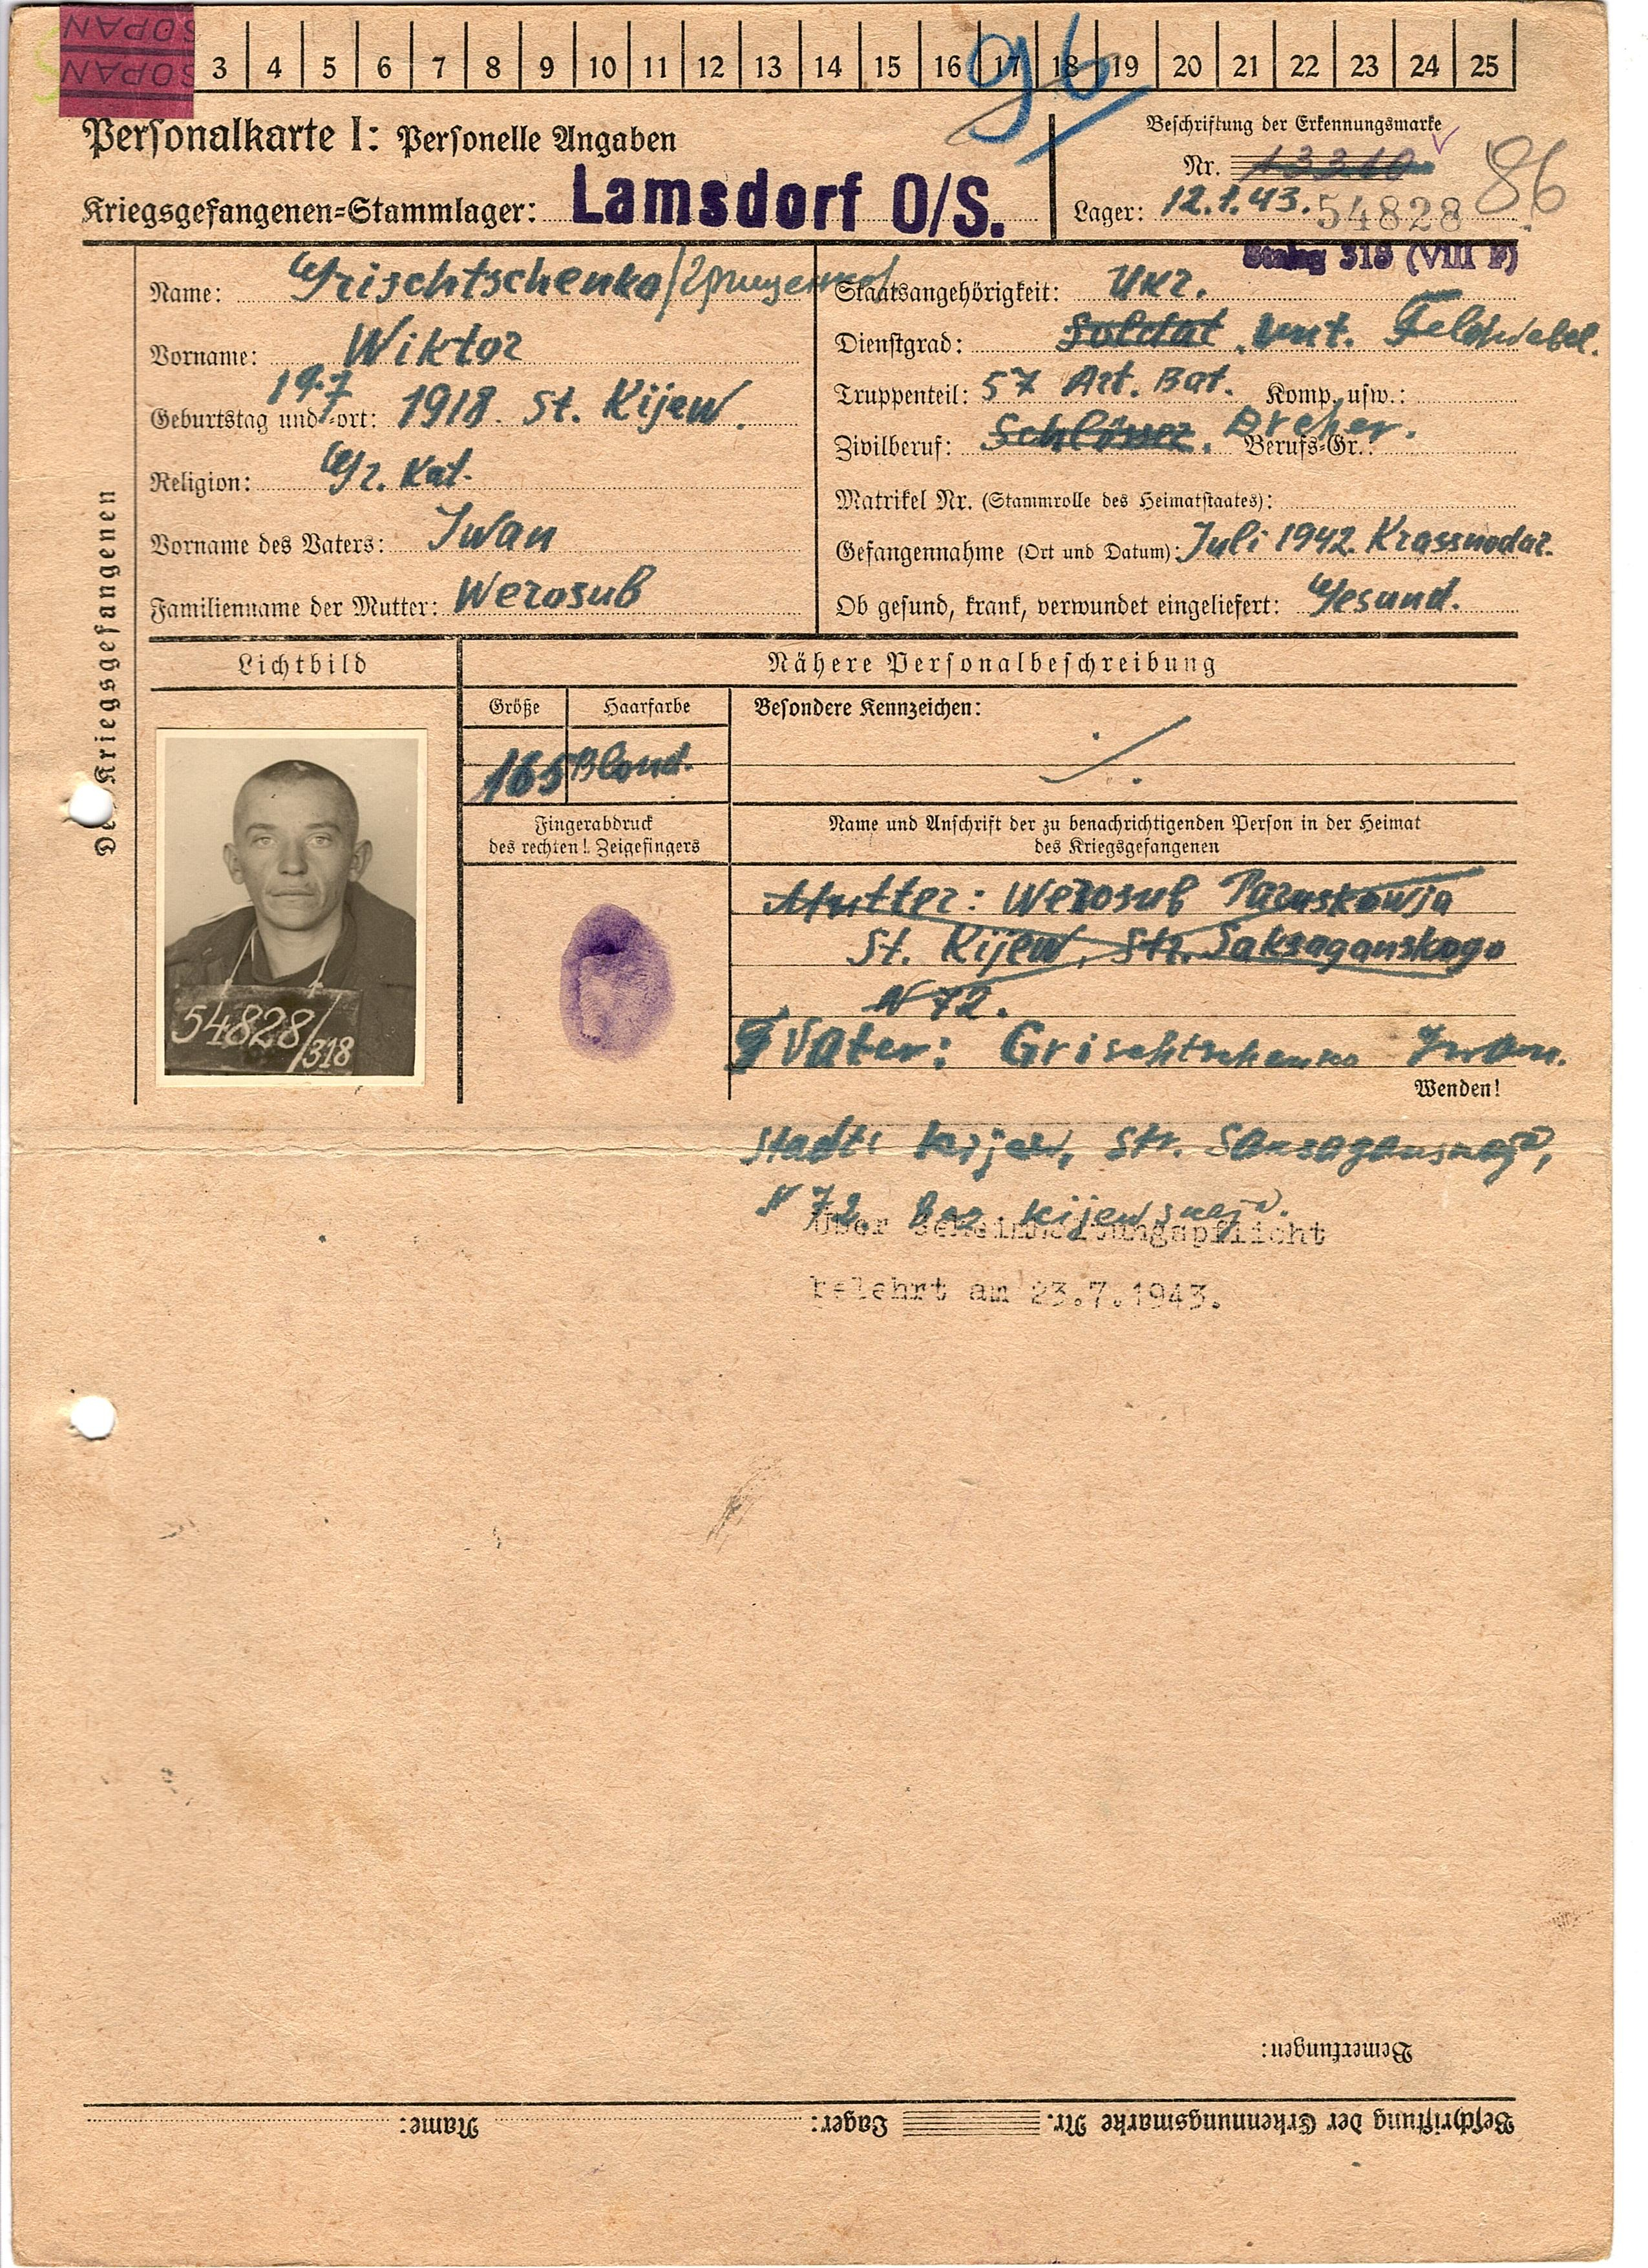 SOPAN
SOPAN
3 4 5 6 7 8 9 10 11 12 13 14 15 16 17 18 19 20 21 22 23 24 25
96
Personalkarte I: Personelle Angaben
Beschriftung der Erkennungsmarke
Nr. 13310
86
Kriegsgefangenen=Stammlager: Lamsdorf O/S.
Lager: 12.1.43. 54828
Stalag 318 (VIII F)
Des Kriegsgefangenen
Name: Grischtschenko/
Vorname: Wiktor
19.7
Geburtstag und =ort: 1918 St. Kijew.
Religion: Gr. Kat.
Vorname des Vaters: Iwan
Familienname der Mutter: Werosub
Staatsangehörigkeit: Ukr.
Dienstgrad: Soldat, Unt. Feldwebel.
Truppenteil: 57 Art. Bat. Komp. usw.:
Zivilberuf: Schlösser. Dreher. Berufs=Gr.:
Matrikel Nr. (Stammrolle des Heimatstaates):
Gefangennahme (Ort und Datum): Juli 1942. Krassnodar.
Ob gesund, krank, verwundet eingeliefert: Gesund.
Lichtbild
Nähere Personalbeschreibung
Größe Haarfarbe Besondere Kennzeichen:
165 Blond.
Fingerabdruck
des rechten! Zeigefingers
Name und Anschrift der zu benachrichtigenden Person in der Heimat
des Kriegsgefangenen
Mutter: Werosub Paraskowja
St. Kijew, Str. Saksaganskogo
N 72.
Vater: Grischtschenko Iwan.
54828/318
Wenden!
Stadt Kijew, Str.
N 72.
Über Geheimhaltungspflicht
belehrt am 23.7.1943.
Bemerkungen:
Beschriftung der Erkennungsmarke Nr. Lager: Name: